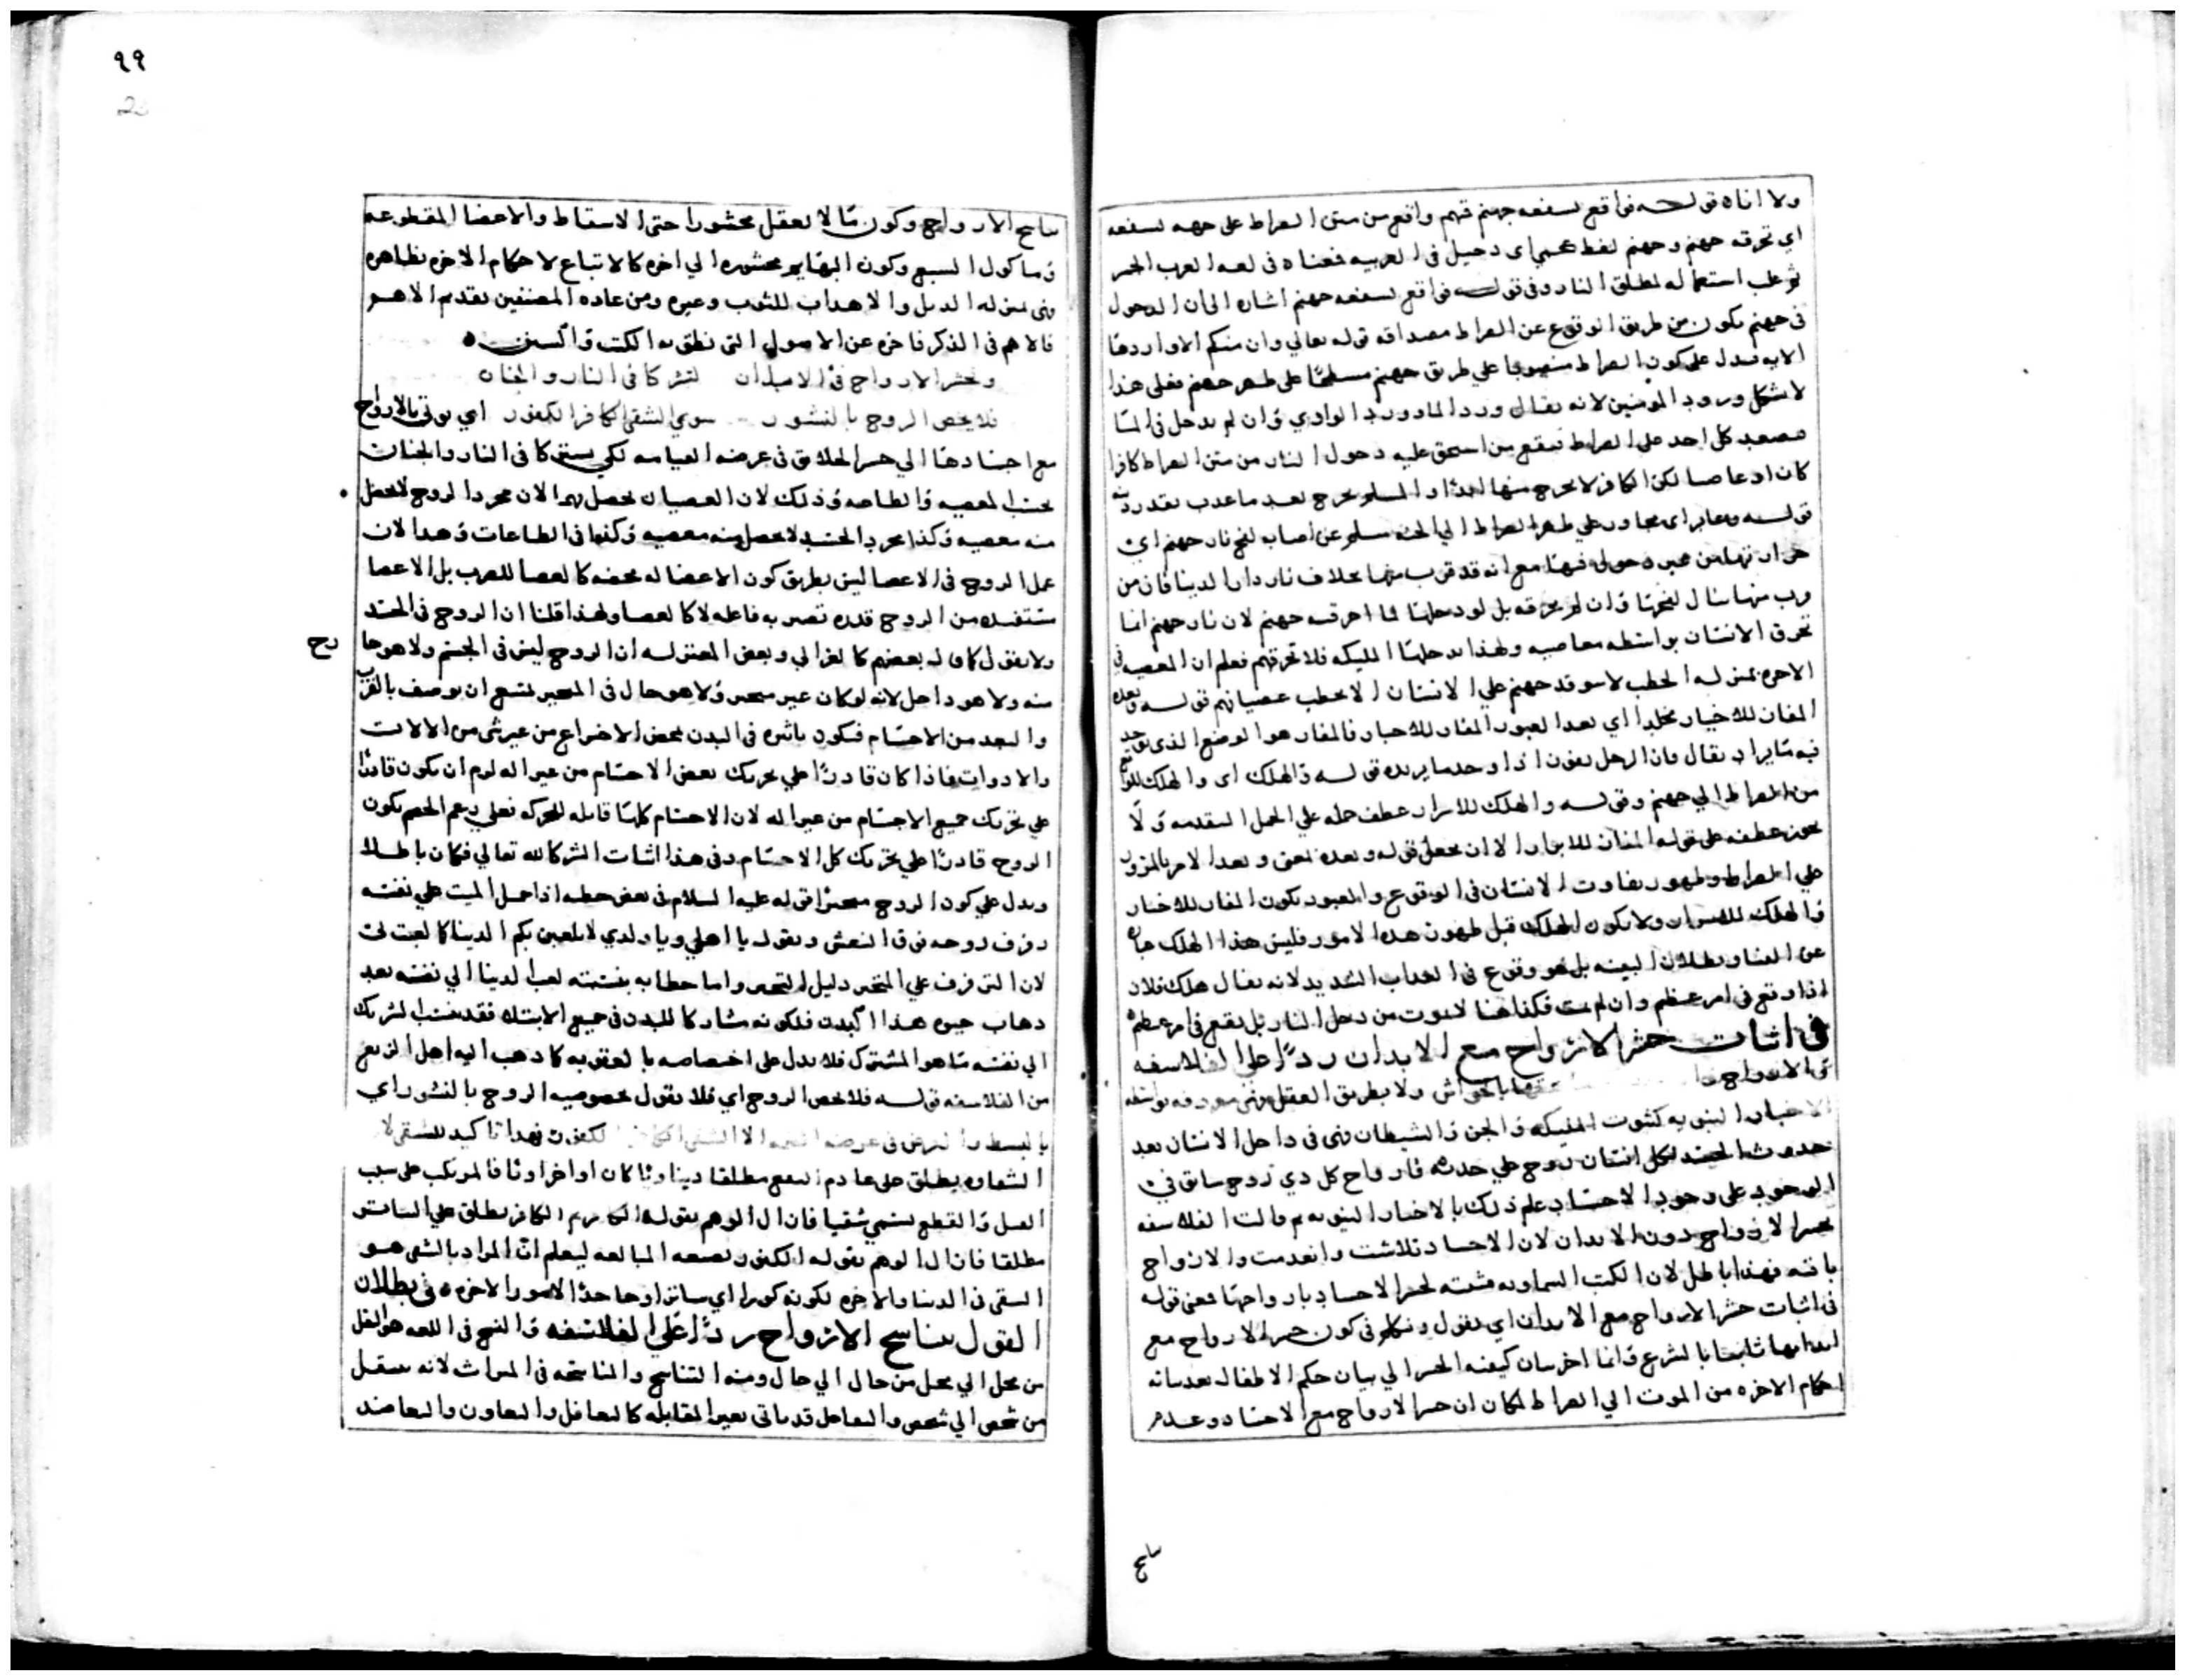 ولا اناه قوله فواقع لسفعه جهنم فمنهم واقع من متن الصراط على جهه لسفعه
اي تحرقه جهنم وجهنم لفظ عجمي اي دخيل في العربيه فمعناه في لغه العرب الحر
ثم غلب استعماله لمطلق النار وفي قوله فواقع لسفعه جهنم اشاره الى ان الدخول
في جهنم يكون من طريق الوقوع عن الصراط مصداقه قوله تعالي وان منكم الا واردها
الايه تدل على كون الصراط منصوبا علي طريق جهنم على ظهر جهنم فعلى هذا
لا يشكل ورود المومنين لانه يقال ورد الماء وورد الوادي وان لم يدخل في الما
فيصعد كل احد على الصراط فيقع من استحق عليه دخول النار من متن الصراط كافرا
كان او عاصيا لكن الكافر لا يخرج منها ابدا والمسلم يخرج بعد ما عذب بقدر ذنبه
قوله وعابر اي مجاوز علي ظهر الصراط الي الجنه سلم عن اصاب لفح نار جهنم اي
حرارتها من غير دخول فيها مع انه قد قرب منها بخلاف نار دار الدنيا فان من
قرب منها ينال لفحها وان لم تحرقه بل لو دخلها لما احرقته جهنم لان نار جهنم انما
تحرق الانسان بواسطه معاصيه ولهذا يدخلها المليكه فلا تحرقهم فعلم ان المعصيه في
الاخره بمنزله الحطب لا توقد جهنم علي الانسان الا بحطب عصيانهم قوله وبعده
المفاز للاخيار مخلدا اي بعد العبور المفاز للاخيار فالمفاز هو الموضع الذي يوجد
فيه ما يراد يقال فاز الرجل يفوز اذا وجد ما يريده قوله والهلك اي والهلك للوقوع
من الصراط الي جهنم وقوله والهلك للاشرار عطف جمله علي الجمل المتقدمه ولا
يجوز عطفه على قوله المفاز للابرار الا ان يجعل قوله وبعده بمعنى وبعد الامر بالمرور
علي الصراط وظهور تفاوت الانسان في الوقوع والعبور يكون المفاز للاخيار
والهلك للاشرار ولا يكون الهلك قبل ظهور هذه الامور فليس هذا الهلك عباره
عن الفنا وبطلان البينه بل هو وقوع في العذاب الشديد لانه يقال هلك فلان
اذا وقع في امر عظيم وان لم يمت فكذا هنا لا يموت من دخل النار بل يقع في امر عظيم
في اثبات حشر الارواح مع الابدان ردا على الفلاسفه
ثم الارواح بالحواس ولا بطريق العقل فهي معروفه بواسطه
الاخبار النبويه كثبوت المليكه والجن والشيطان فهي في داخل الانسان بعد
حدوث الجسد لكل انسان روح علي حده فارواح كل ذي روح سابق في
الوجود على وجود الاجساد علم ذلك بالاخبار النبويه ثم قالت الفلاسفه
بحشر الارواح دون الابدان لان الاجساد تلاشت وانعدمت والارواح
باقيه فهذا باطل لان الكتب السماويه مثبته لحشر الاجساد بارواحها فمعنى قوله
في اثبات حشر الارواح مع الابدان اي نقول ونتكلم في كون حشر الارواح مع
ابدانها ثابتا بالشرع وانما اخر بيان كيفيه الحشر الي بيان حكم الاطفال بعد بيانه
احكام الاخره من الموت الي الصراط لمكان ان حشر الارواح مع الاجساد وعدم
تناسخ
٩٩
تناسخ الارواح وكون ما لا يعقل محشورا حتى الاسقاط والاعضا المقطوعه
وماكول السبع وكون البهايم محشوره الي اخره كالاتباع لاحكام الاخره نظاهره
فهي بمنزله الذيل والاهداب للثوب وغيره ومن عاده المصنفين تقديم الاهم
فالاهم في الذكر فاخره عن الاصول التي نطق به الكتب والسنن
ونحشر الارواح في الابدان لتشركا في النار والجنان
فلا يخص الروح بالنشور سوي الشقي الكافر الكفور اي يوتي بالارواح
مع اجسادها الي حشر الخلايق في عرصه القيامه لكي يشتركا في النار والجنان
بحسب المعصيه والطاعه وذلك لان العصيان يحصل بهما لان مجرد الروح لا يحصل
منه معصيه وكذا مجرد الجسد لا يحصل منه معصيه وكذا في الطاعات وهذا لان
عمل الروح في الاعضا ليس بطريق كون الاعضا له محضه كالعصا للضرب بل الاعضا
مستفيده من الروح قدره تصير به فاعله لا كالعصا ولهذا قلنا ان الروح في الجسد
ولا نقول كما قاله بعضهم كالغزالي وبعض المعتزله ان الروح ليس في الجسم ولا هو خارج
منه ولا هو داخل لانه لو كان غير متحيز ولا هو حال في المتحيز لمتنع ان يوصف بالقرب
والبعد من الاجسام فيكون تاثيره في البدن بمحض الاختراع من غير شي من الالات
والادوات فاذا كان قادرا علي تحريك بعض الاجسام من غير اله لزم ان يكون قادرا
علي تحريك جميع الاجسام من غير اله لان الاجسام كلها قابله للحركه فعلي زعم الخصم يكون
الروح قادرا علي تحريك كل الاجسام وفي هذا اثبات الشركا لله تعالي فكان باطلا
ويدل علي كون الروح متحيزا قوله عليه السلام في بعض خطبه اذا حمل الميت علي نعشه
رفرف روحه فوق النعش ويقول يا اهلي ويا ولدي لا تلعبن بكم الدنيا كما لعبت بي
لان الترفرف علي المتحيز دليل التحيز واما خطابه بنسبته لعب الدنيا الي نفسه بعد
ذهاب حيوه هذا البدن فلكونه مشاركا للبدن في جميع الابتلا فقد ينسب الشريك
الي نفسه ما هو المشترك فلا يدل على اختصاصه بالعقوبه كما ذهب اليه اهل الزيغ
من الفلاسفه قوله فلا يخص الروح اي فلا نقول بخصوصيه الروح بالنشور اي
في عرصه الا الشقي الكافر الكفور فهذا تاكيد للشقي لا
الشقاوه يطلق على عادم النفع مطلقا دينا وياكان او اخراويا فالمرتكب على سبب
القتل والقطع يسمي شقيا فازال الوهم بقوله الكافر ثم الكافر يطلق علي الساتر
مطلقا فازال الوهم بقوله الكفور بصيغه المبالغه ليعلم ان المراد بالشقي هو
الشقي في الدنيا والاخره لكونه كفورا اي ساترا وجاحدا الامور الاخره في بطلان
القول بتناسخ الارواح ردا علي الفلاسفه والنسخ في اللغه هو النقل
من محل الي محل من حال الي حال ومنه التناسخ والمناسخه في الميراث لانه ينتقل
من شخص الي شخص والتفاعل قد ياتي بغير المقابله كالتغافل والتعاون والتعاضد